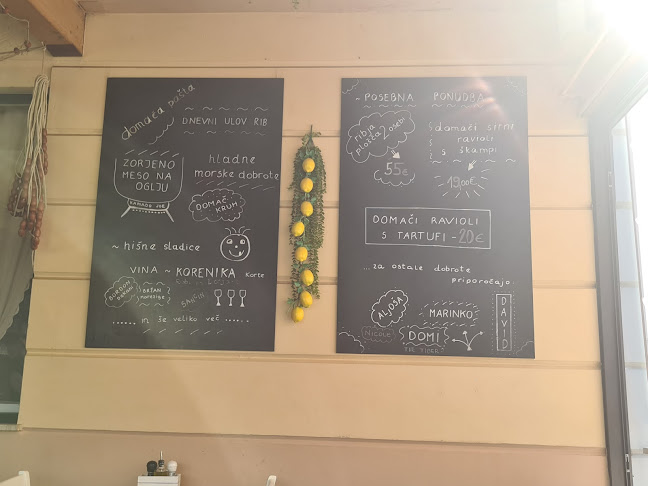 domača pašta
DNEVNI ULOV RIB
ZORJENO
MESO NA
OGLJU
hladne
morske dobrote
DOMAČ
KRUH
~ hišne sladice
VINA ~ KORENIKA
BORDON
BRŽAN
... in še veliko več ...
~ POSEBNA PONUDBA
ribja
plošča 2 osebi
55€
domači sirni
ravioli
s škampi
19,00€
DOMAČI RAVIOLI
S TARTUFI - 20€
...za ostale dobrote
priporočajo
ALJOŠA
MARINKO
DAVID
NICOLE
DOMI